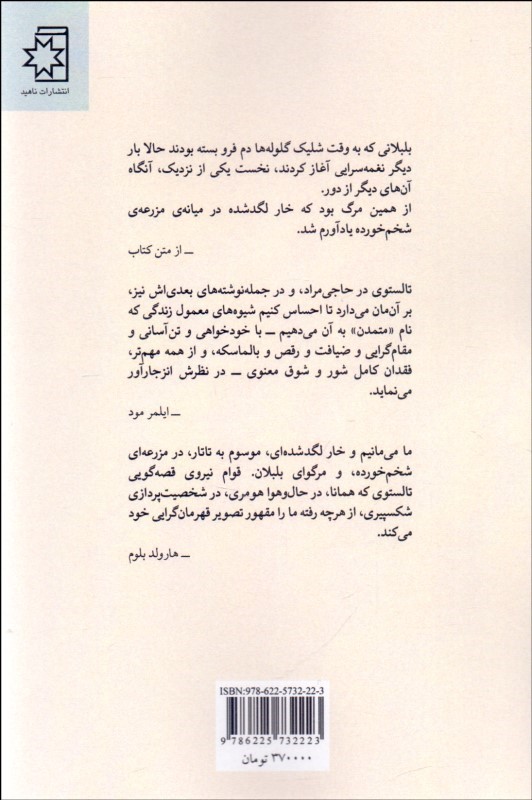 انتشارات ناهید
بلبلانی که به وقت شلیک گلوله‌ها دم فرو بسته بودند حالا بار
دیگر نغمه‌سرایی آغاز کردند، نخست یکی از نزدیک، آنگاه
آن‌های دیگر از دور.
از همین مرگ بود که خار لگدشده در میانه‌ی مزرعه‌ی
شخم‌خورده یادآورم شد.
ــ از متن کتاب
تالستوی در حاجی‌مراد، و در جمله‌نوشته‌های بعدی‌اش نیز،
بر آن‌مان می‌دارد تا احساس کنیم شیوه‌های معمول زندگی که
نام «متمدن» به آن می‌دهیم ــ با خودخواهی و تن‌آسانی و
مقام‌گرایی و ضیافت و رقص و بالماسکه، و از همه مهم‌تر،
فقدان کامل شور و شوق معنوی ــ در نظرش انزجارآور
می‌نماید.
ــ ایلمر مود
ما می‌مانیم و خار لگدشده‌ای، موسوم به تاتار، در مزرعه‌ای
شخم‌خورده، و مرگوای بلبلان. قوام نیروی قصه‌گویی
تالستوی که همانا، در حال‌وهوا هومری، در شخصیت‌پردازی
شکسپیری، از هرچه رفته ما را مقهور تصویر قهرمان‌گرایی خود
می‌کند.
ــ هارولد بلوم
ISBN:978-622-5732-22-3
9 786225 732223
۳۷۰۰۰۰ تومان